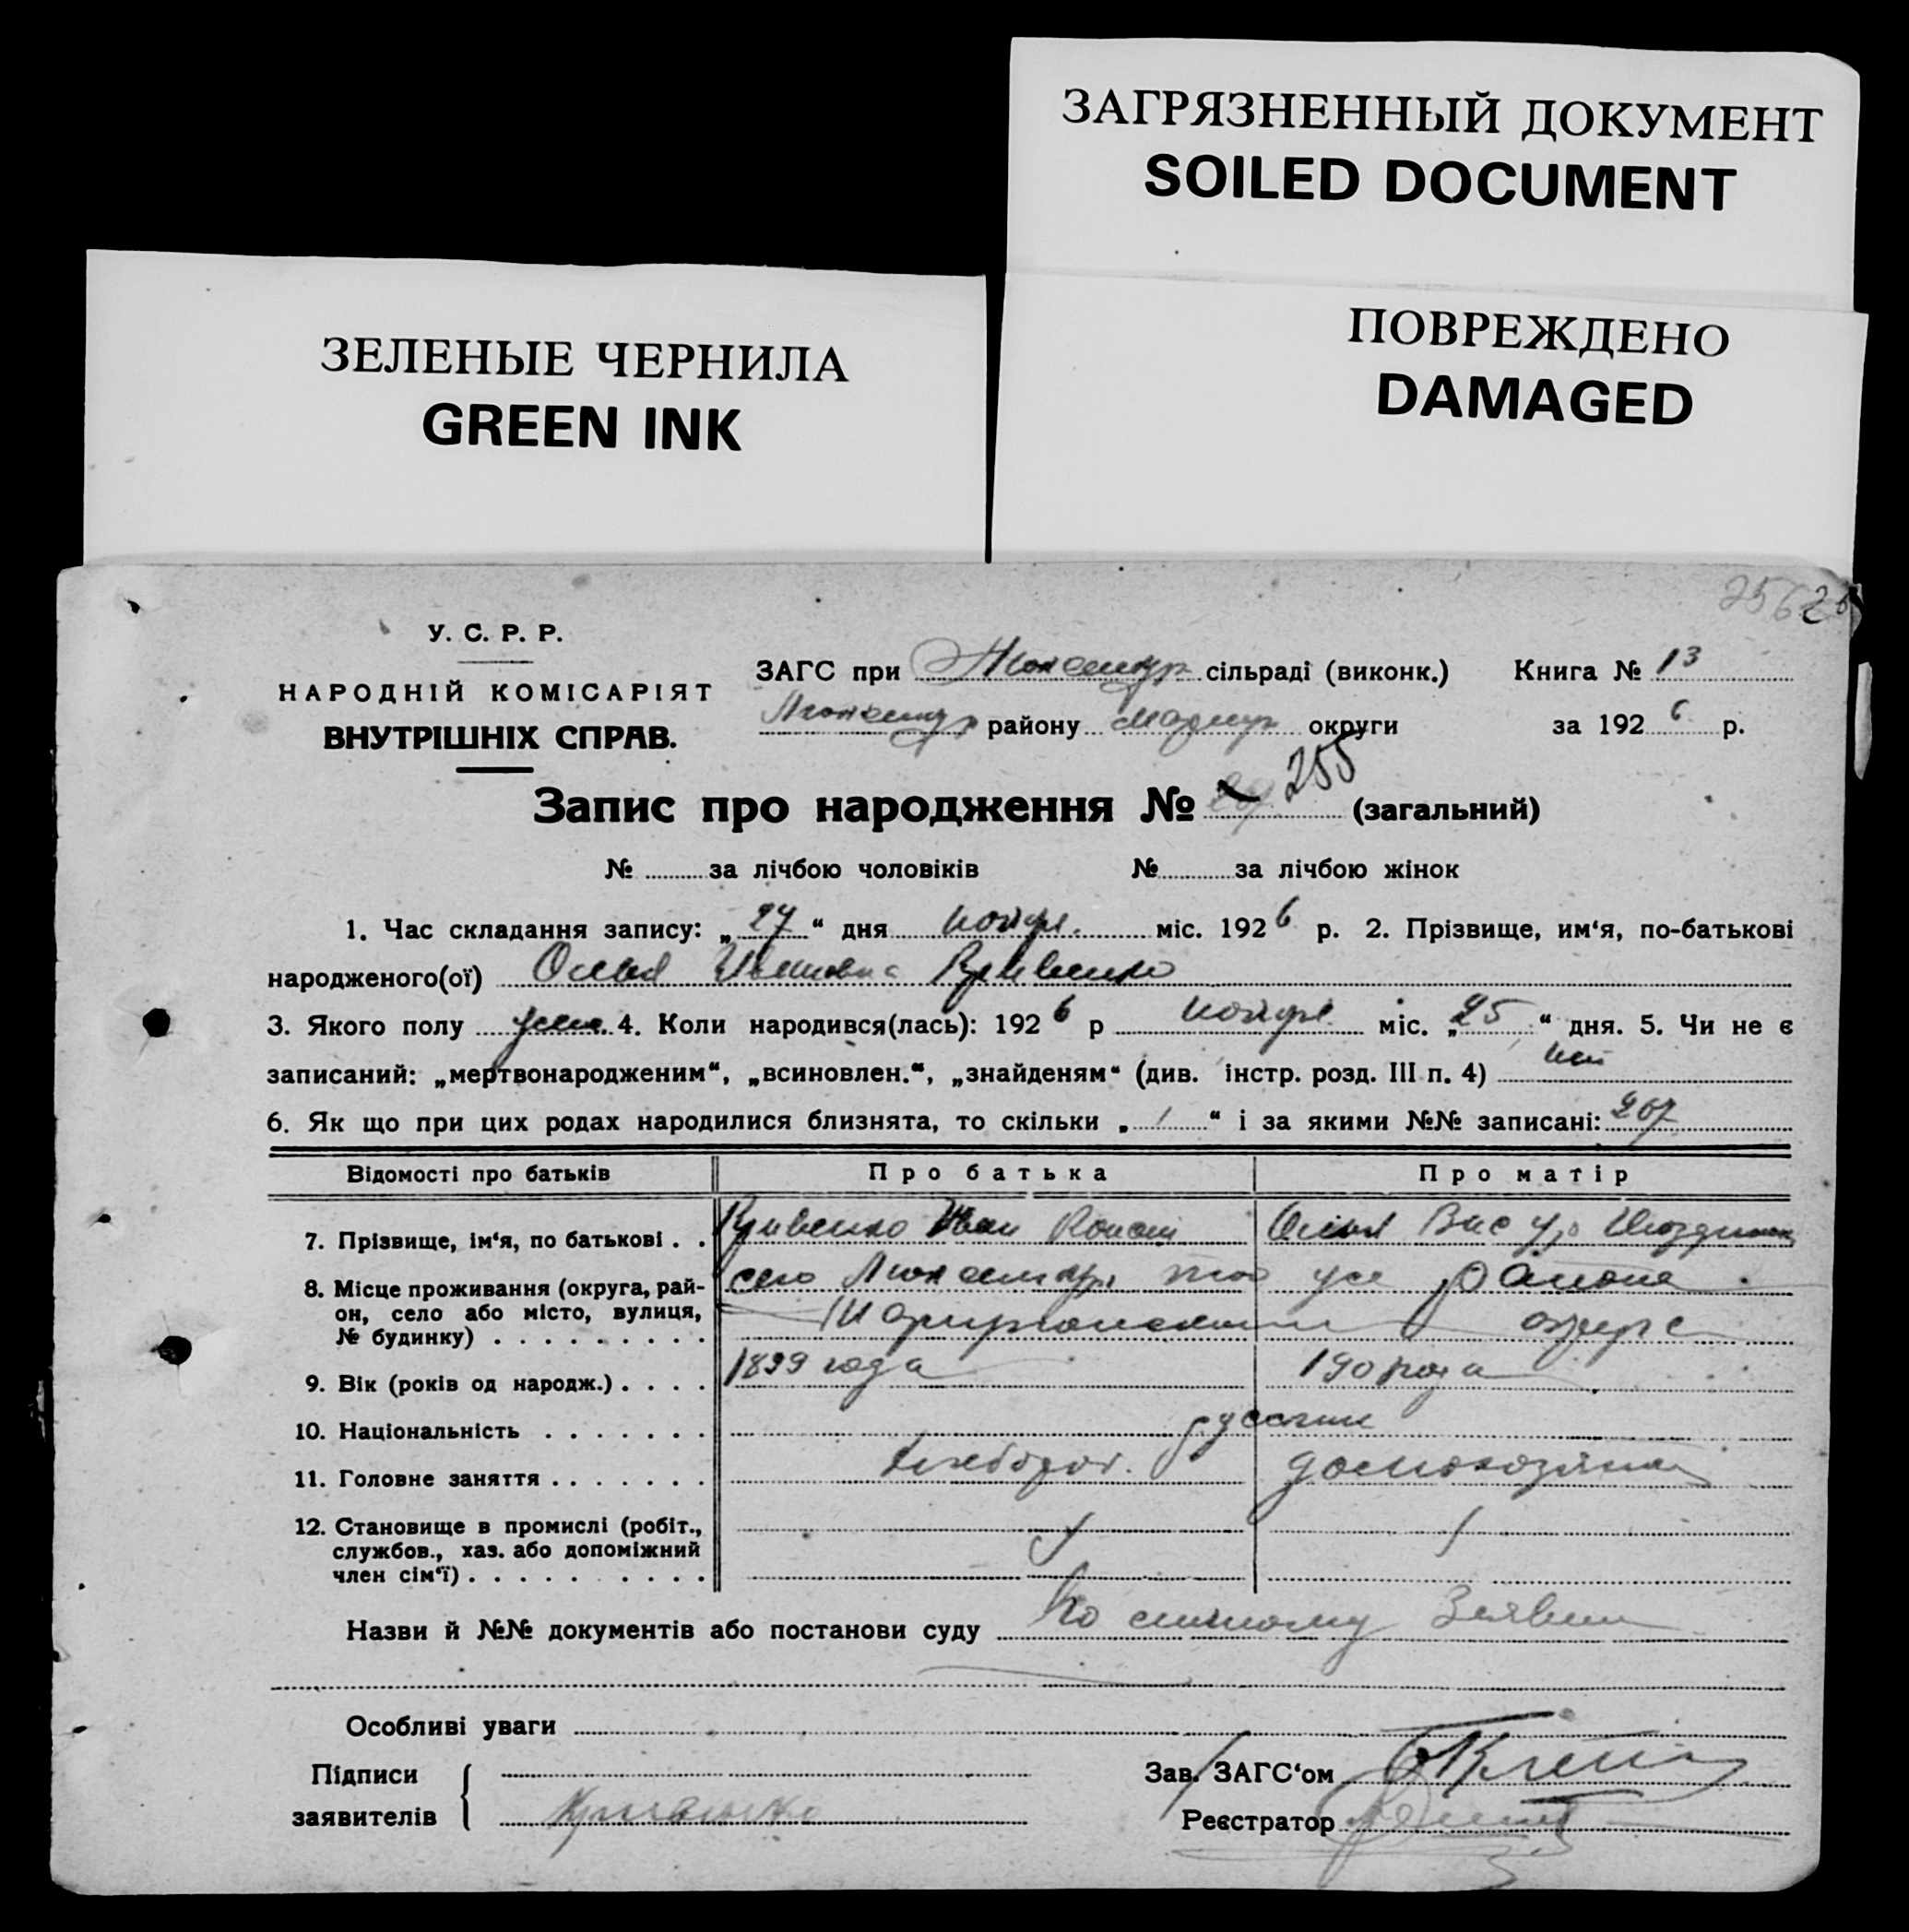 ЗАГРЯЗНЕННЫЙ ДОКУМЕНТ
SOILED DOCUMENT
ЗЕЛЕНЫЕ ЧЕРНИЛА
GREEN INK
ПОВРЕЖДЕНО
DAMAGED
У. С. Р. Р.
НАРОДНІЙ КОМІСАРІЯТ
ВНУТРІШНІХ СПРАВ.
ЗАГС при сільраді (виконк.) Книга № 13
району Мариуп округи за 1926 р.
Запис про народження № 255 (загальний)
№ за лічбою чоловіків № за лічбою жінок
1. Час складання запису: „27“ дня ноября міс. 1926 р. 2. Прізвище, им‘я, по-батькові
народженого(ої) Ивановна Кривенко
3. Якого полу жен 4. Коли народився(лась): 1926 р ноября міс. „25“ дня. 5. Чи не є
записаний: „мертвонародженим“, „всиновлен.“, „знайденям“ (див. інстр. розд. III п. 4) нет
6. Як що при цих родах народилися близнята, то скільки „ “ і за якими №№ записані: 267
Відомості про батьків Про батька Про матір
7. Прізвище, ім‘я, по батькові . . Кривенко Иван
8. Місце проживання (округа, рай-
он, село або місто, вулиця,
№ будинку) . . . . . . . . . село того же района Мариупольского округа
9. Вік (років од народж.) . . . . 1899 года
10. Національність . . . . . . . русские
11. Головне заняття . . . . . . . хлебороб. домохозяйка
12. Становище в промислі (робіт.,
службов., хаз. або допоміжний
член сім‘ї) . . . . . . . . . .
Назви й №№ документів або постанови суду По личному Заявлен
Особливі уваги
Підписи
заявителів Кривенко
Зав. ЗАГС‘ом
Реєстратор